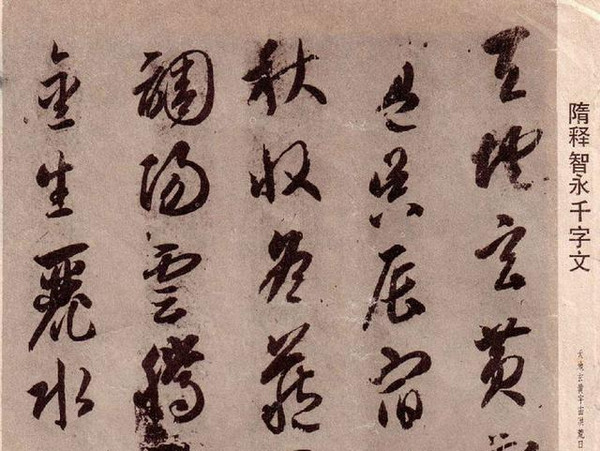 隋释智永千字文
天地玄黄宇宙洪荒日
天地玄黄
盈昃辰宿
秋收冬藏
調陽雲騰
金生麗水